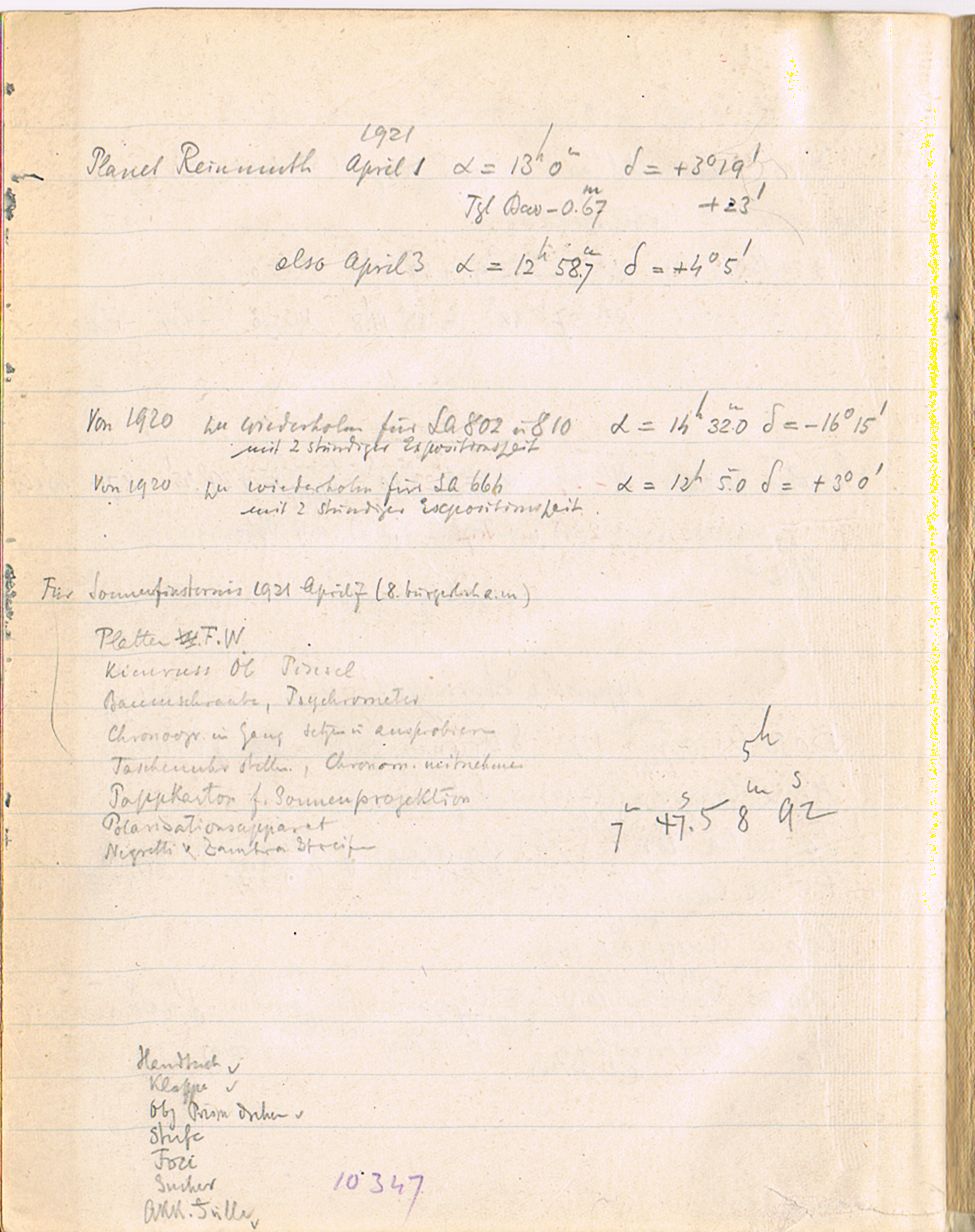 1921
Planet Reinmuth April 1 α = 13ʰ 0ᵐ δ = +3°19'
Tgl Bew −0.67ᵐ +23'
also April 3 α = 12ʰ 58.7ᵐ δ = +4° 5'
Von 1920 zu wiederholen für SA 802 u 810 α = 14ʰ 32.0ᵐ δ = −16° 15'
mit 2 stündiger Expositionszeit
Von 1920 zu wiederholen für SA 666 α = 12ʰ 5.0 δ = +3° 0'
mit 2 stündiger Expositionszeit.
Für Sonnenfinsternis 1921 April 7 (8. bürgerlich a.m)
Platten F.W.
Kienruss Öl Pinsel
Baumschraube, Psychrometer
Chronogr. in Gang setzen u ausprobieren
Taschenuhr stellen, Chronom. mitnehmen
5ʰ
Pappkarton f. Sonnenprojektion
7ᵐ 47.5ˢ 8ᵐ 92ˢ
Polarisationsapparat
Negretti u. Zambra Streifen
Handtuch ✓
Klappe ✓
Obj Prism drehen ✓
Stufe
Foci
Sucher
10347
Akk. Fülle ✓